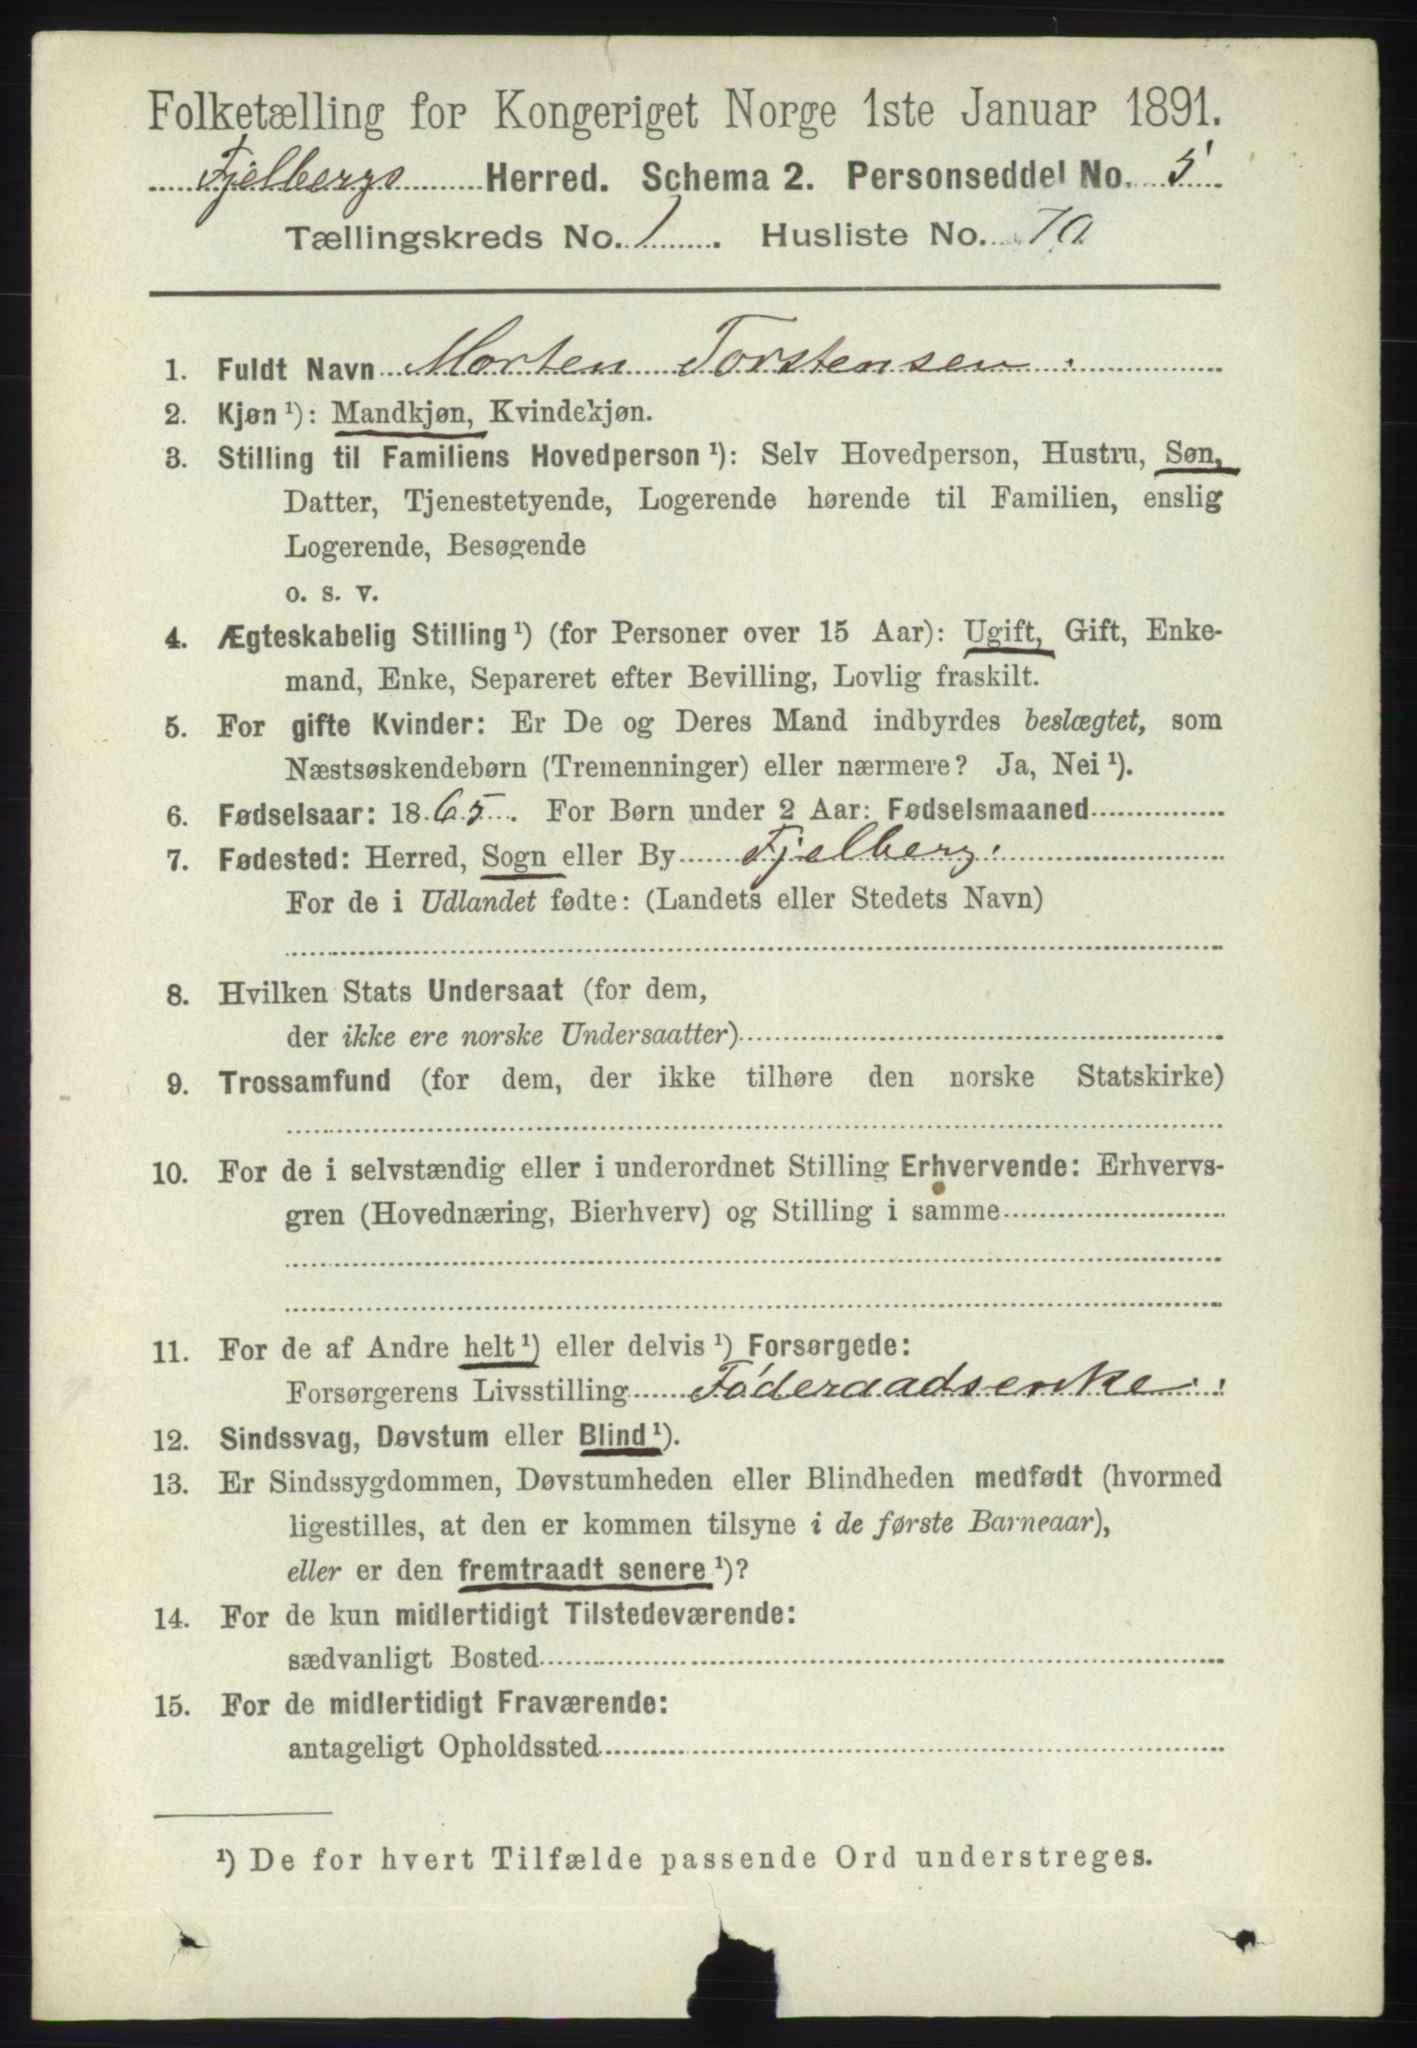 Folketælling for Kongeriget Norge 1ste Januar 1891.
Fjelbergs Herred. Schema 2. Personseddel No. 5
Tællingskreds No. 1. Husliste No. 70
1. Fuldt Navn Morten Torstensen
2. Kjøn ¹): Mandkjøn, Kvindekjøn.
3. Stilling til Familiens Hovedperson ¹): Selv Hovedperson, Hustru, Søn,
Datter, Tjenestetyende, Logerende hørende til Familien, enslig
Logerende, Besøgende
o. s. v.
4. Ægteskabelig Stilling ¹) (for Personer over 15 Aar): Ugift, Gift, Enke-
mand, Enke, Separeret efter Bevilling, Lovlig fraskilt.
5. For gifte Kvinder: Er De og Deres Mand indbyrdes beslægtet, som
Næstsøskendebørn (Tremenninger) eller nærmere? Ja, Nei ¹).
6. Fødselsaar: 1865. For Børn under 2 Aar: Fødselsmaaned
7. Fødested: Herred, Sogn eller By Fjelberg.
For de i Udlandet fødte: (Landets eller Stedets Navn)
8. Hvilken Stats Undersaat (for dem,
der ikke ere norske Undersaatter)
9. Trossamfund (for dem, der ikke tilhøre den norske Statskirke)
10. For de i selvstændig eller i underordnet Stilling Erhvervende: Erhvervs-
gren (Hovednæring, Bierhverv) og Stilling i samme
11. For de af Andre helt ¹) eller delvis ¹) Forsørgede:
Forsørgerens Livsstilling Föderaadsenke
12. Sindssvag, Døvstum eller Blind ¹).
13. Er Sindssygdommen, Døvstumheden eller Blindheden medfødt (hvormed
ligestilles, at den er kommen tilsyne i de første Barneaar),
eller er den fremtraadt senere ¹)?
14. For de kun midlertidigt Tilstedeværende:
sædvanligt Bosted
15. For de midlertidigt Fraværende:
antageligt Opholdssted
¹) De for hvert Tilfælde passende Ord understreges.